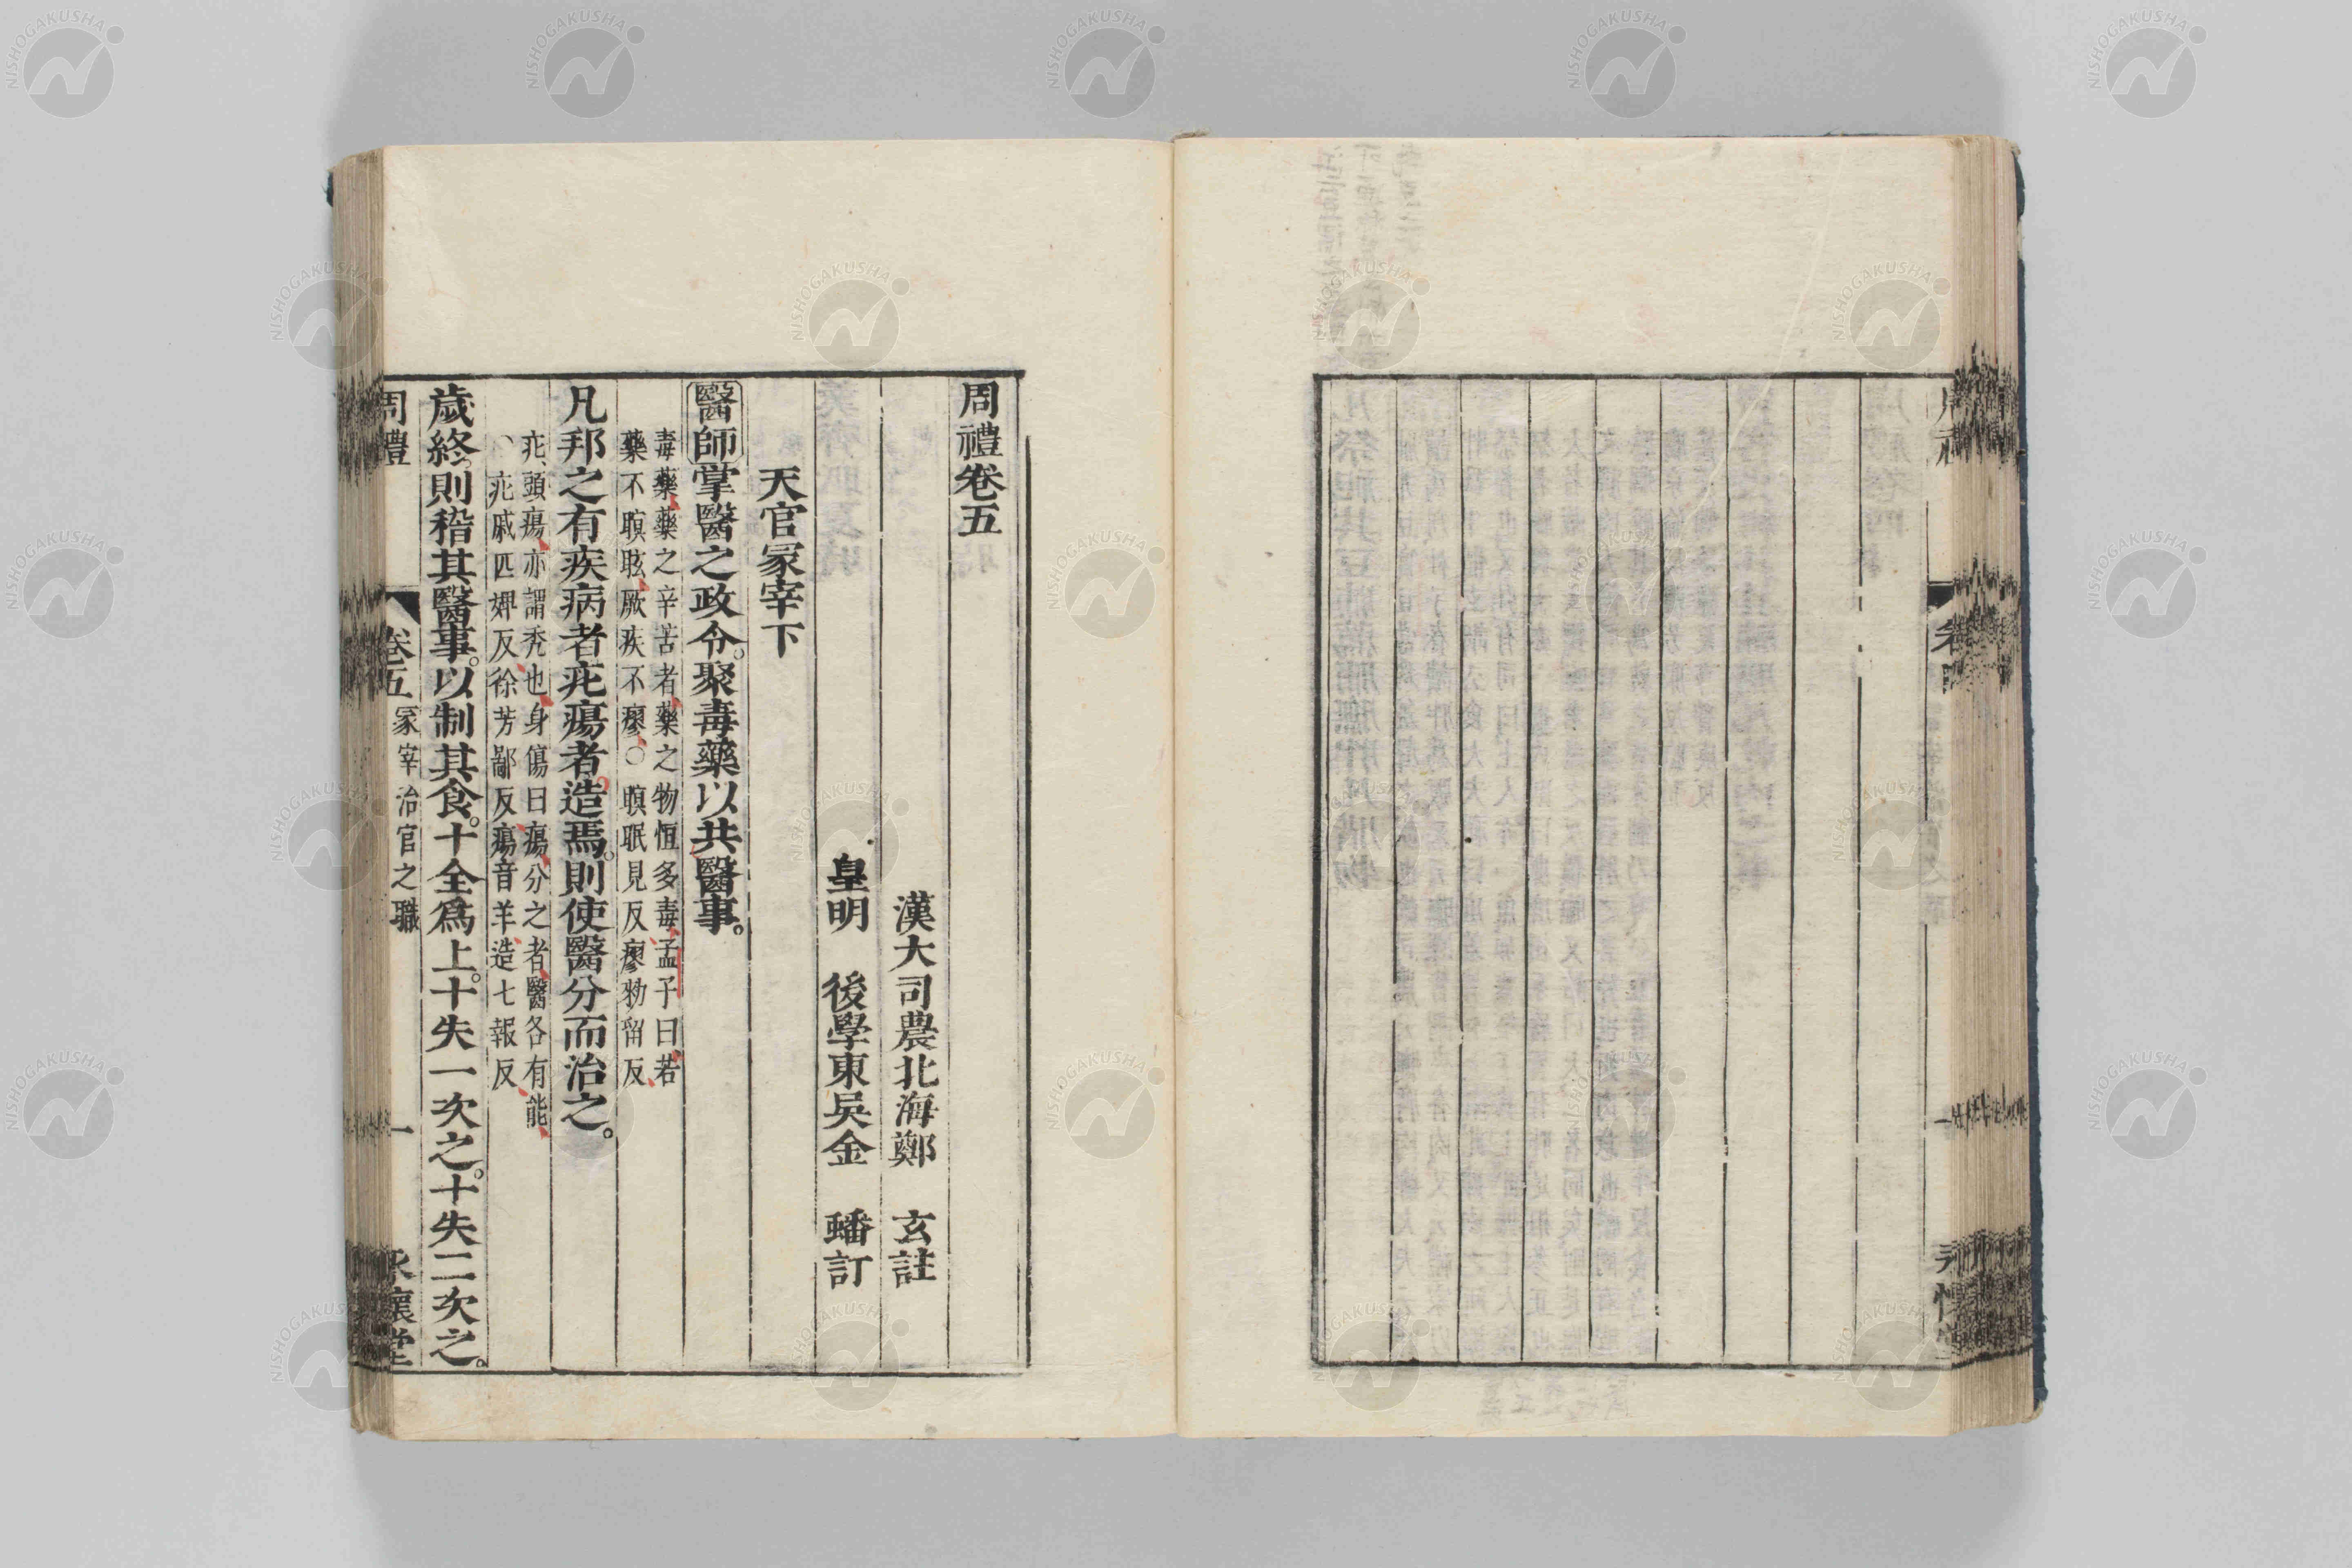 周禮卷五
漢大司農北海鄭　玄註
皇明　後學東吳金　蟠訂
天官冢宰下
醫師掌醫之政令。聚毒藥以共醫事。
毒藥藥之辛苦者藥之物恒多毒孟子曰若
藥不瞑眩厥疾不瘳○瞑眠見反瘳勑留反
凡邦之有疾病者疕瘍者造焉。則使醫分而治之。
疕、頭瘍亦謂禿也身傷曰瘍分之者醫各有能
○疕戚匹婢反徐芳鄙反瘍音羊造七報反
歲終。則稽其醫事。以制其食。十全爲上。十失一次之。十失二次之。
周禮　卷五　冢宰治官之職　一　永懷堂
NISHOGAKUSHA